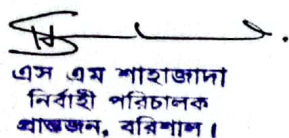 এস এম শাহাজাদা
নির্বাহী পরিচালক
প্রান্তজন, বরিশাল।